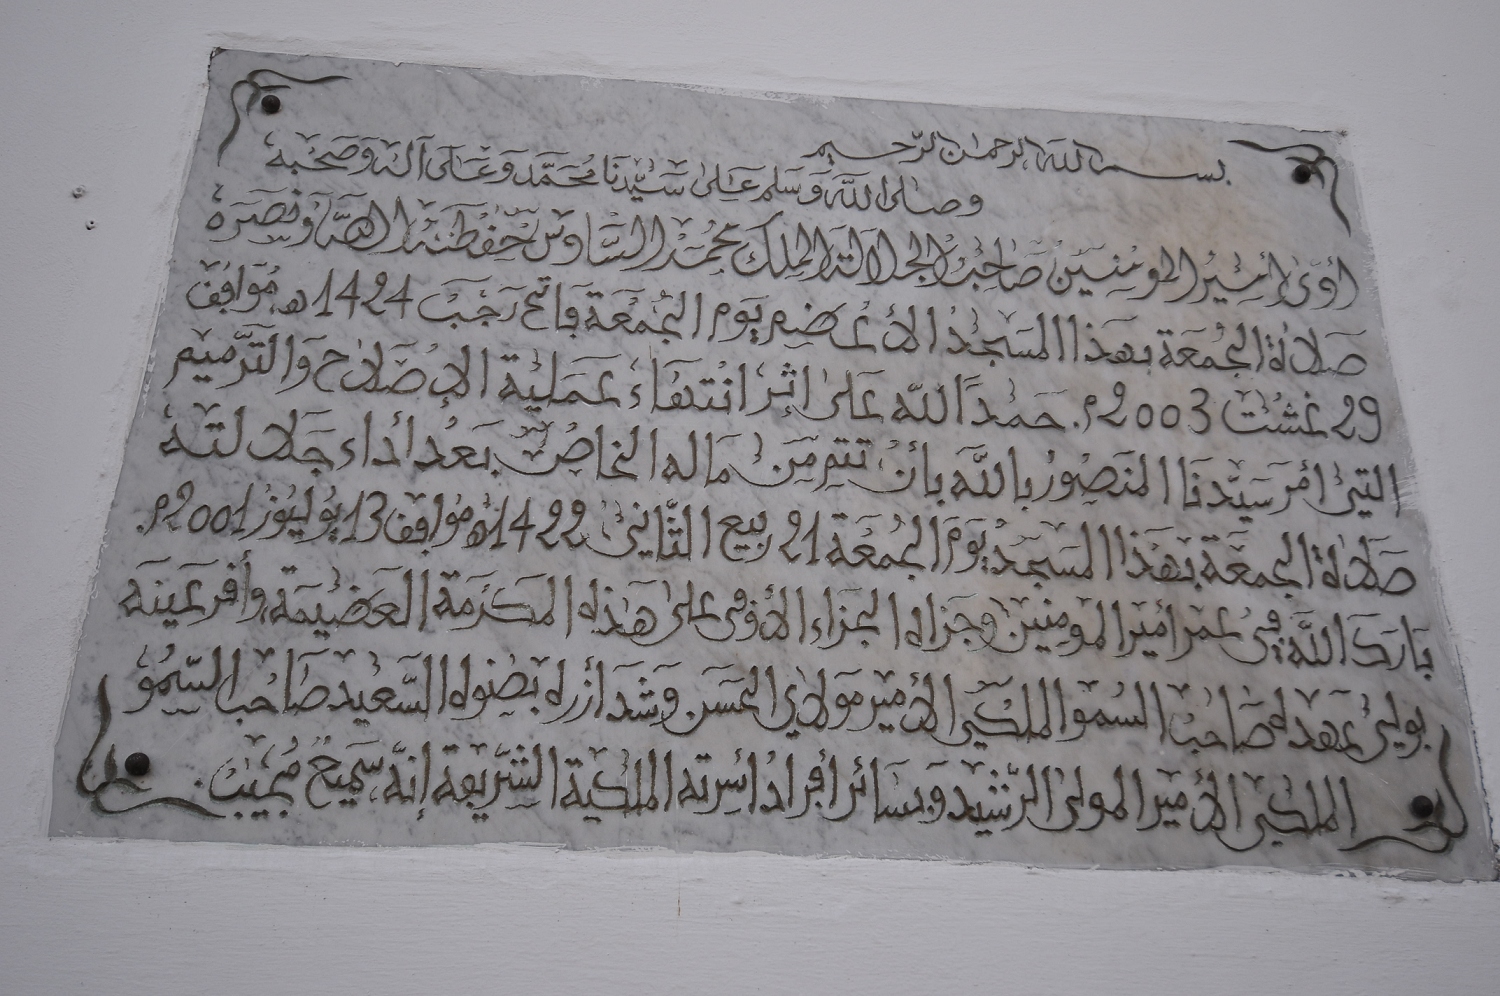 بسم الله الرحمان الرحيم
وصلى الله وسلم على سيدنا محمد وعلى آله وصحبه
أدى أمير المومنين صاحب الجلالة الملك محمد السادس حفظه الله ونصره
صلاة الجمعة بهذا المسجد الأعضم يوم الجمعة فاتح رجب 1424 هـ موافق
29 غشت 2003م. حمدا لله على إثر انتهاء عملية الإصلاح والترميم
التي أمر سيدنا المنصور بالله بأن تتم من ماله الخاص بعد أداء جلالته
صلاة الجمعة بهذا المسجد يوم الجمعة 21 ربيع الثاني 1422هـ موافق 13 يوليوز 2001م.
بارك الله في عمر أمير المومنين وجزاه الجزاء الأوفى على هذه المكرمة العضيمة وأقر عينه
بولي عهده صاحب السمو الملكي الأمير مولاي الحسن وشد أزره بصنوه السعيد صاحب السمو
الملكي الأمير المولى الرشيد وبسائر أفراد أسرته الملكية الشريفة إنه سميع مجيب.